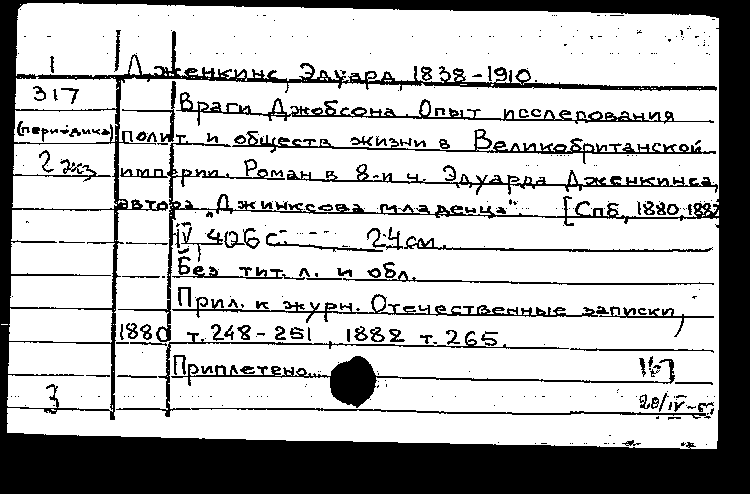 1 Дженкинс, Эдуард, 1838-1910.
317 Враги Джобсона. Опыт исследования
(периодика) полит. и обществ жизни в Великобританской
2 экз империи. Роман в 8-и ч. Эдуарда Дженкинса,
автора „Джинксова младенца". [Спб, 1880, 1882
IV, 406 с. 24 см.
Без тит. л. и обл.
Прил. к журн. Отечественные записки,
1880 т. 248-251, 1882 т. 265.
Приплетено.
3 20/IV-